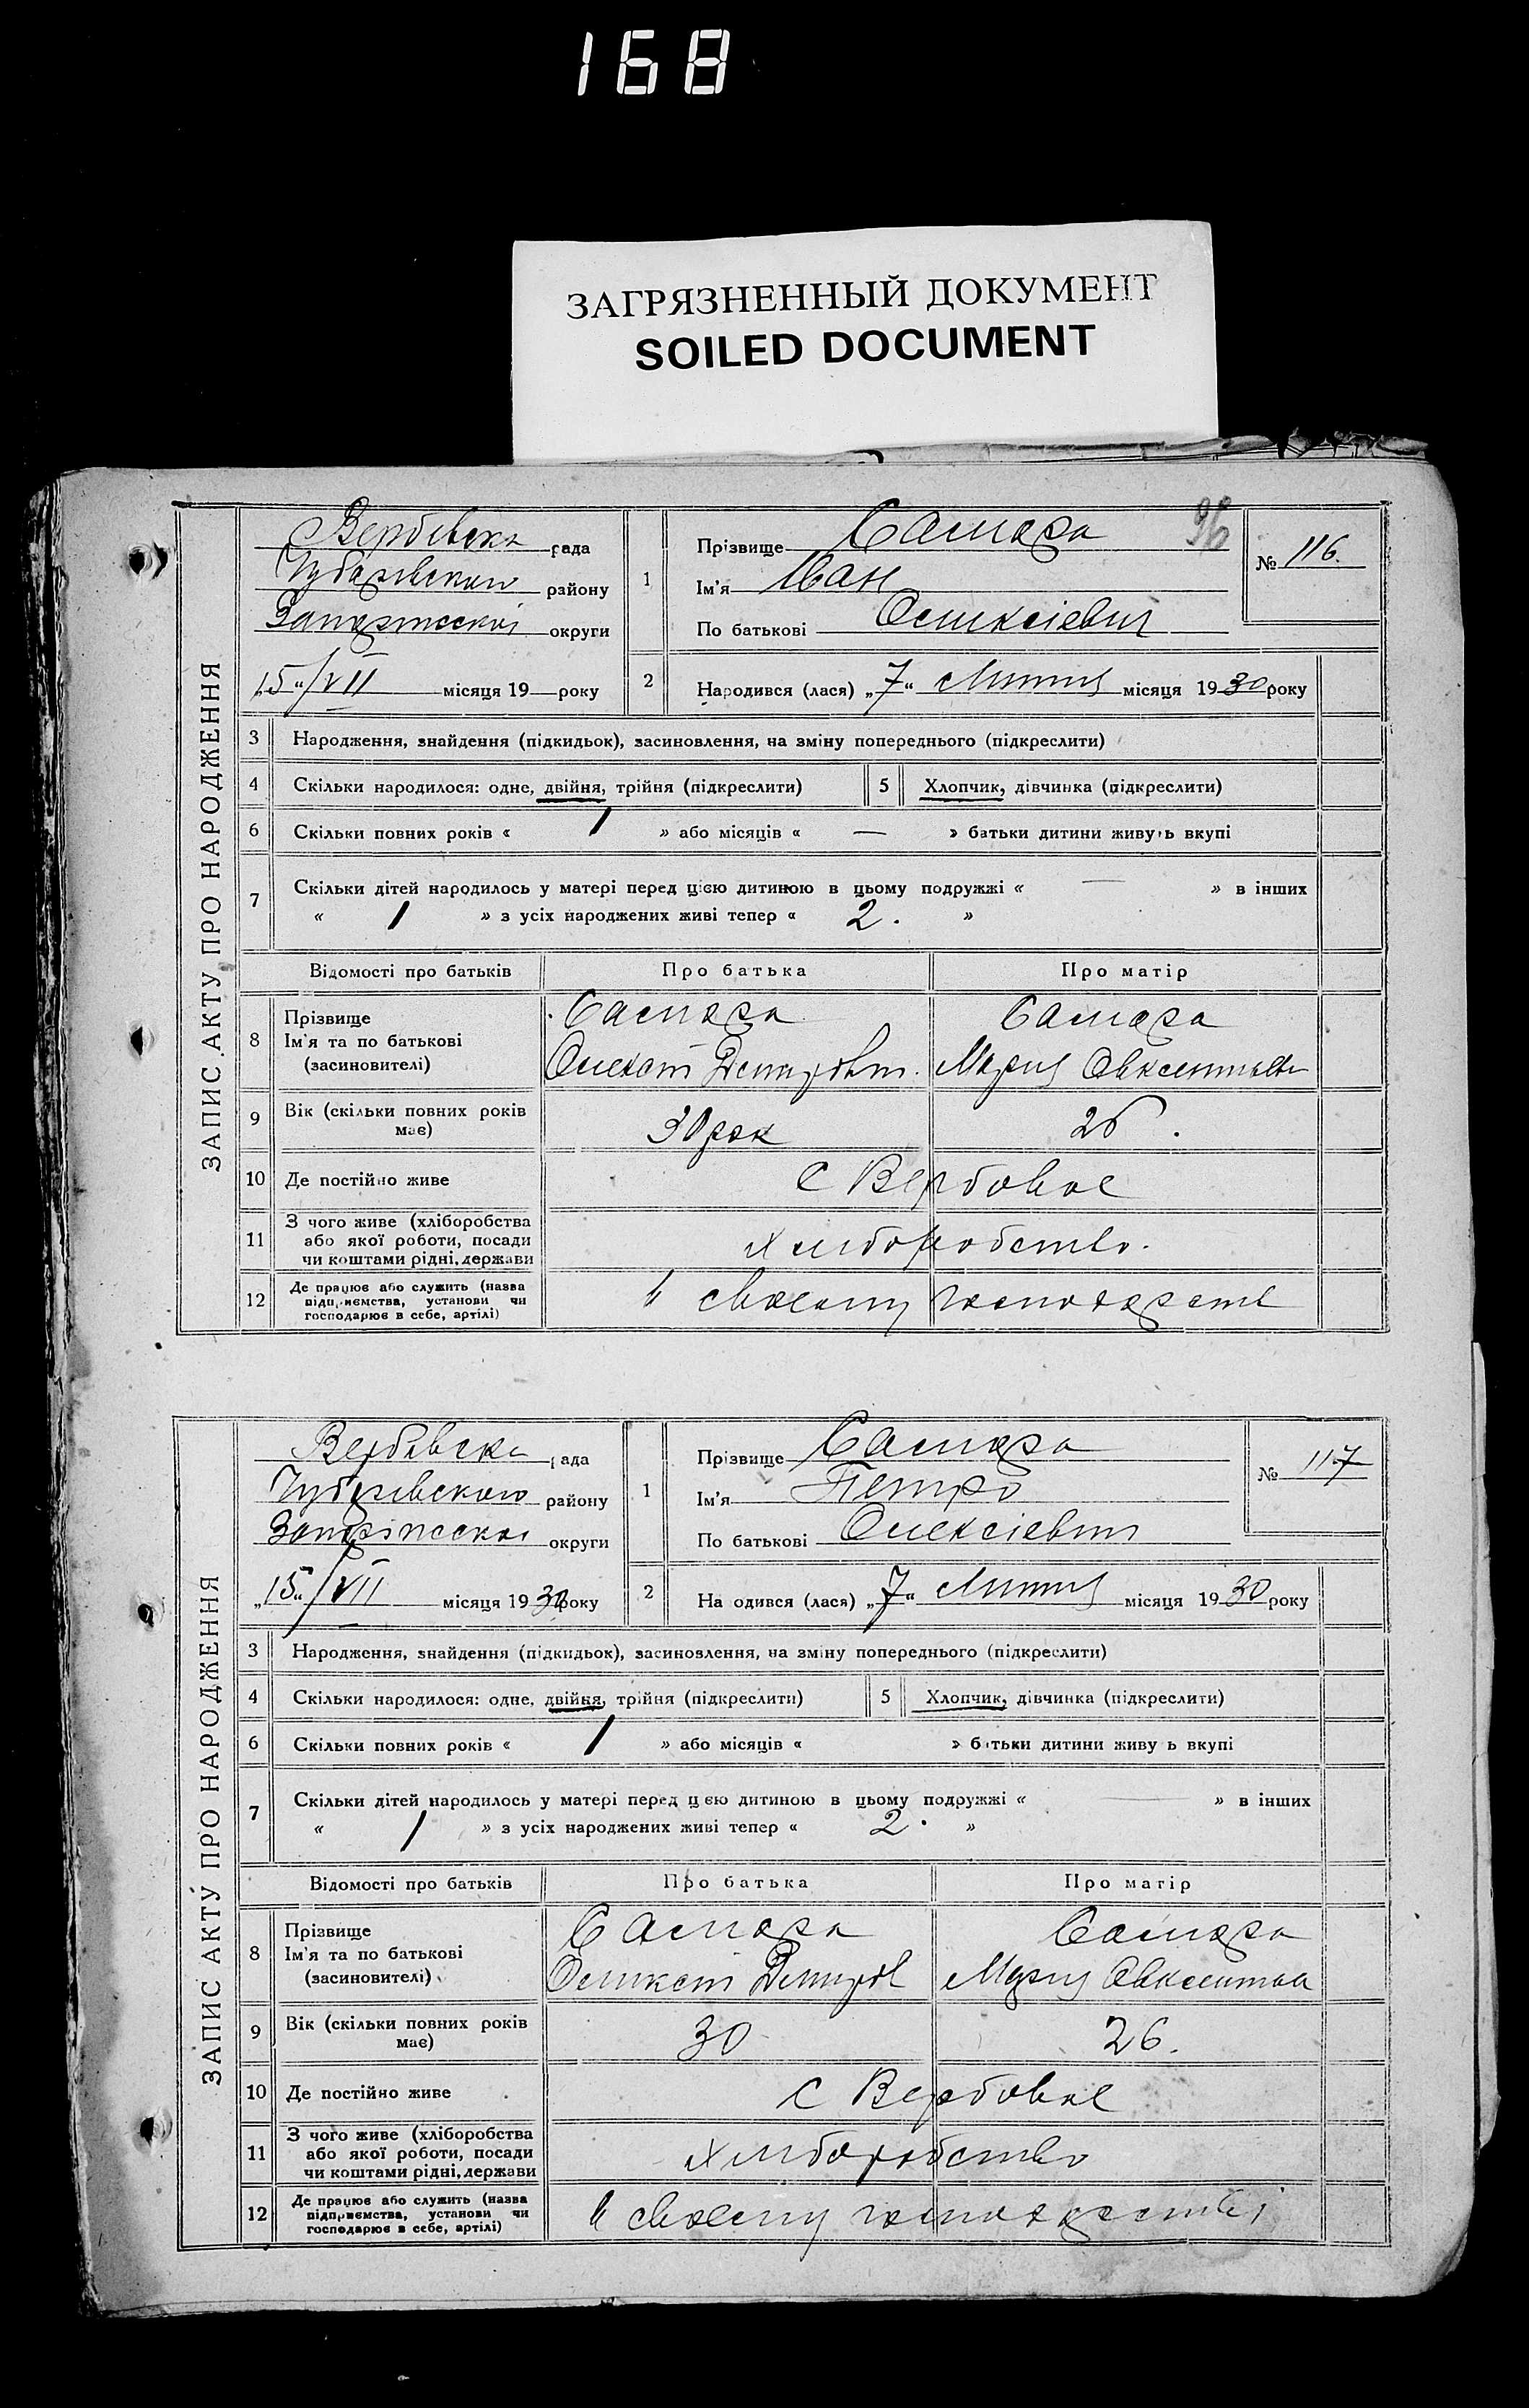 168
ЗАГРЯЗНЕННЫЙ ДОКУМЕНТ
SOILED DOCUMENT
96
ЗАПИС АКТУ ПРО НАРОДЖЕННЯ
Вербівська рада
Чубарівського району
Запорізської округи
„15“/VII місяця 19 року
1 Прізвище Самара
Ім'я Іван
По батькові Олексієвич
№ 116.
2 Народився (лася) „7“ Липня місяця 1930 року
3 Народження, знайдення (підкидьок), засиновлення, на зміну попереднього (підкреслити)
4 Скільки народилося: одне, двійня, трійня (підкреслити) 5 Хлопчик, дівчинка (підкреслити)
6 Скільки повних років « 1 » або місяців « — » батьки дитини живуть вкупі
7 Скільки дітей народилось у матері перед цією дитиною в цьому подружжі « — » в інших
« 1 » з усіх народжених живі тепер « 2. »
Відомості про батьків Про батька Про матір
8 Прізвище
Ім'я та по батькові
(засновителі)
Самара Самара
Олексій Мария
9 Вік (скільки повних років
має)
30 рок 26.
10 Де постійно живе с Вербове
11 З чого живе (хліборобства
або якої роботи, посади
чи коштами рідні, держави
хліборобство.
12 Де працює або служить (назва
підприємства, установи чи
господарює в себе, артілі)
ЗАПИС АКТУ ПРО НАРОДЖЕННЯ
Вербівська рада
Чубарівського району
Запорізської округи
„15“/VII місяця 1930 року
1 Прізвище Самара
Ім'я Петро
По батькові Олексієвич
№ 117
2 На одився (лася) „7“ Липня місяця 1930 року
3 Народження, знайдення (підкидьок), засиновлення, на зміну попереднього (підкреслити)
4 Скільки народилося: одне, двійня, трійня (підкреслити) 5 Хлопчик, дівчинка (підкреслити)
6 Скільки повних років « 1 » або місяців « » батьки дитини живу ь вкупі
7 Скільки дітей народилось у матері перед цією дитиною в цьому подружжі « — » в інших
« 1 » з усіх народжених живі тепер « 2. »
Відомості про батьків Про батька Про матір
8 Прізвище
Ім'я та по батькові
(засиновителі)
Самара Самара
Олексій Мария
9 Вік (скільки повних років
має)
30 26.
10 Де постійно живе с Вербове
11 З чого живе (хліборобства
або якої роботи, посади
чи коштами рідні, держави
хліборобство
12 Де працює або служить (назва
підприємства, установи чи
господарює в себе, артілі)